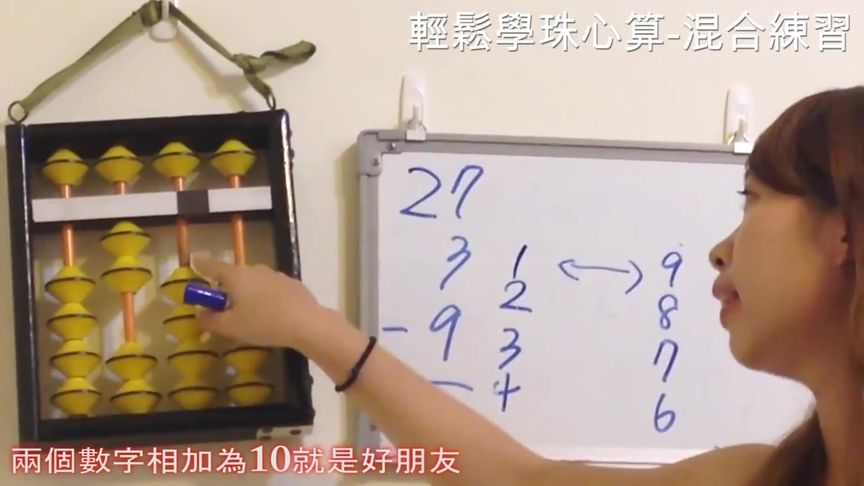 輕鬆學珠心算-混合練習
27
3
-9
1 ↔ 9
2 8
3 7
4 6
兩個數字相加為10就是好朋友